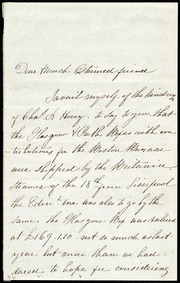 Dear Much Esteemed friend
I avail myself of the kindness
of Chas. A Hury. to say to you, that
the Glasgow & Perth Boxes with con
tributions for the Boston Bazaar
are shipped by the Britannia
Steamer of the 18th from Liverpool
the Edinr. one was also to go by the
same. the Glasgow Box was valued
at £169.1.10 not so much as last
year but more than we had
dared to hope for considering